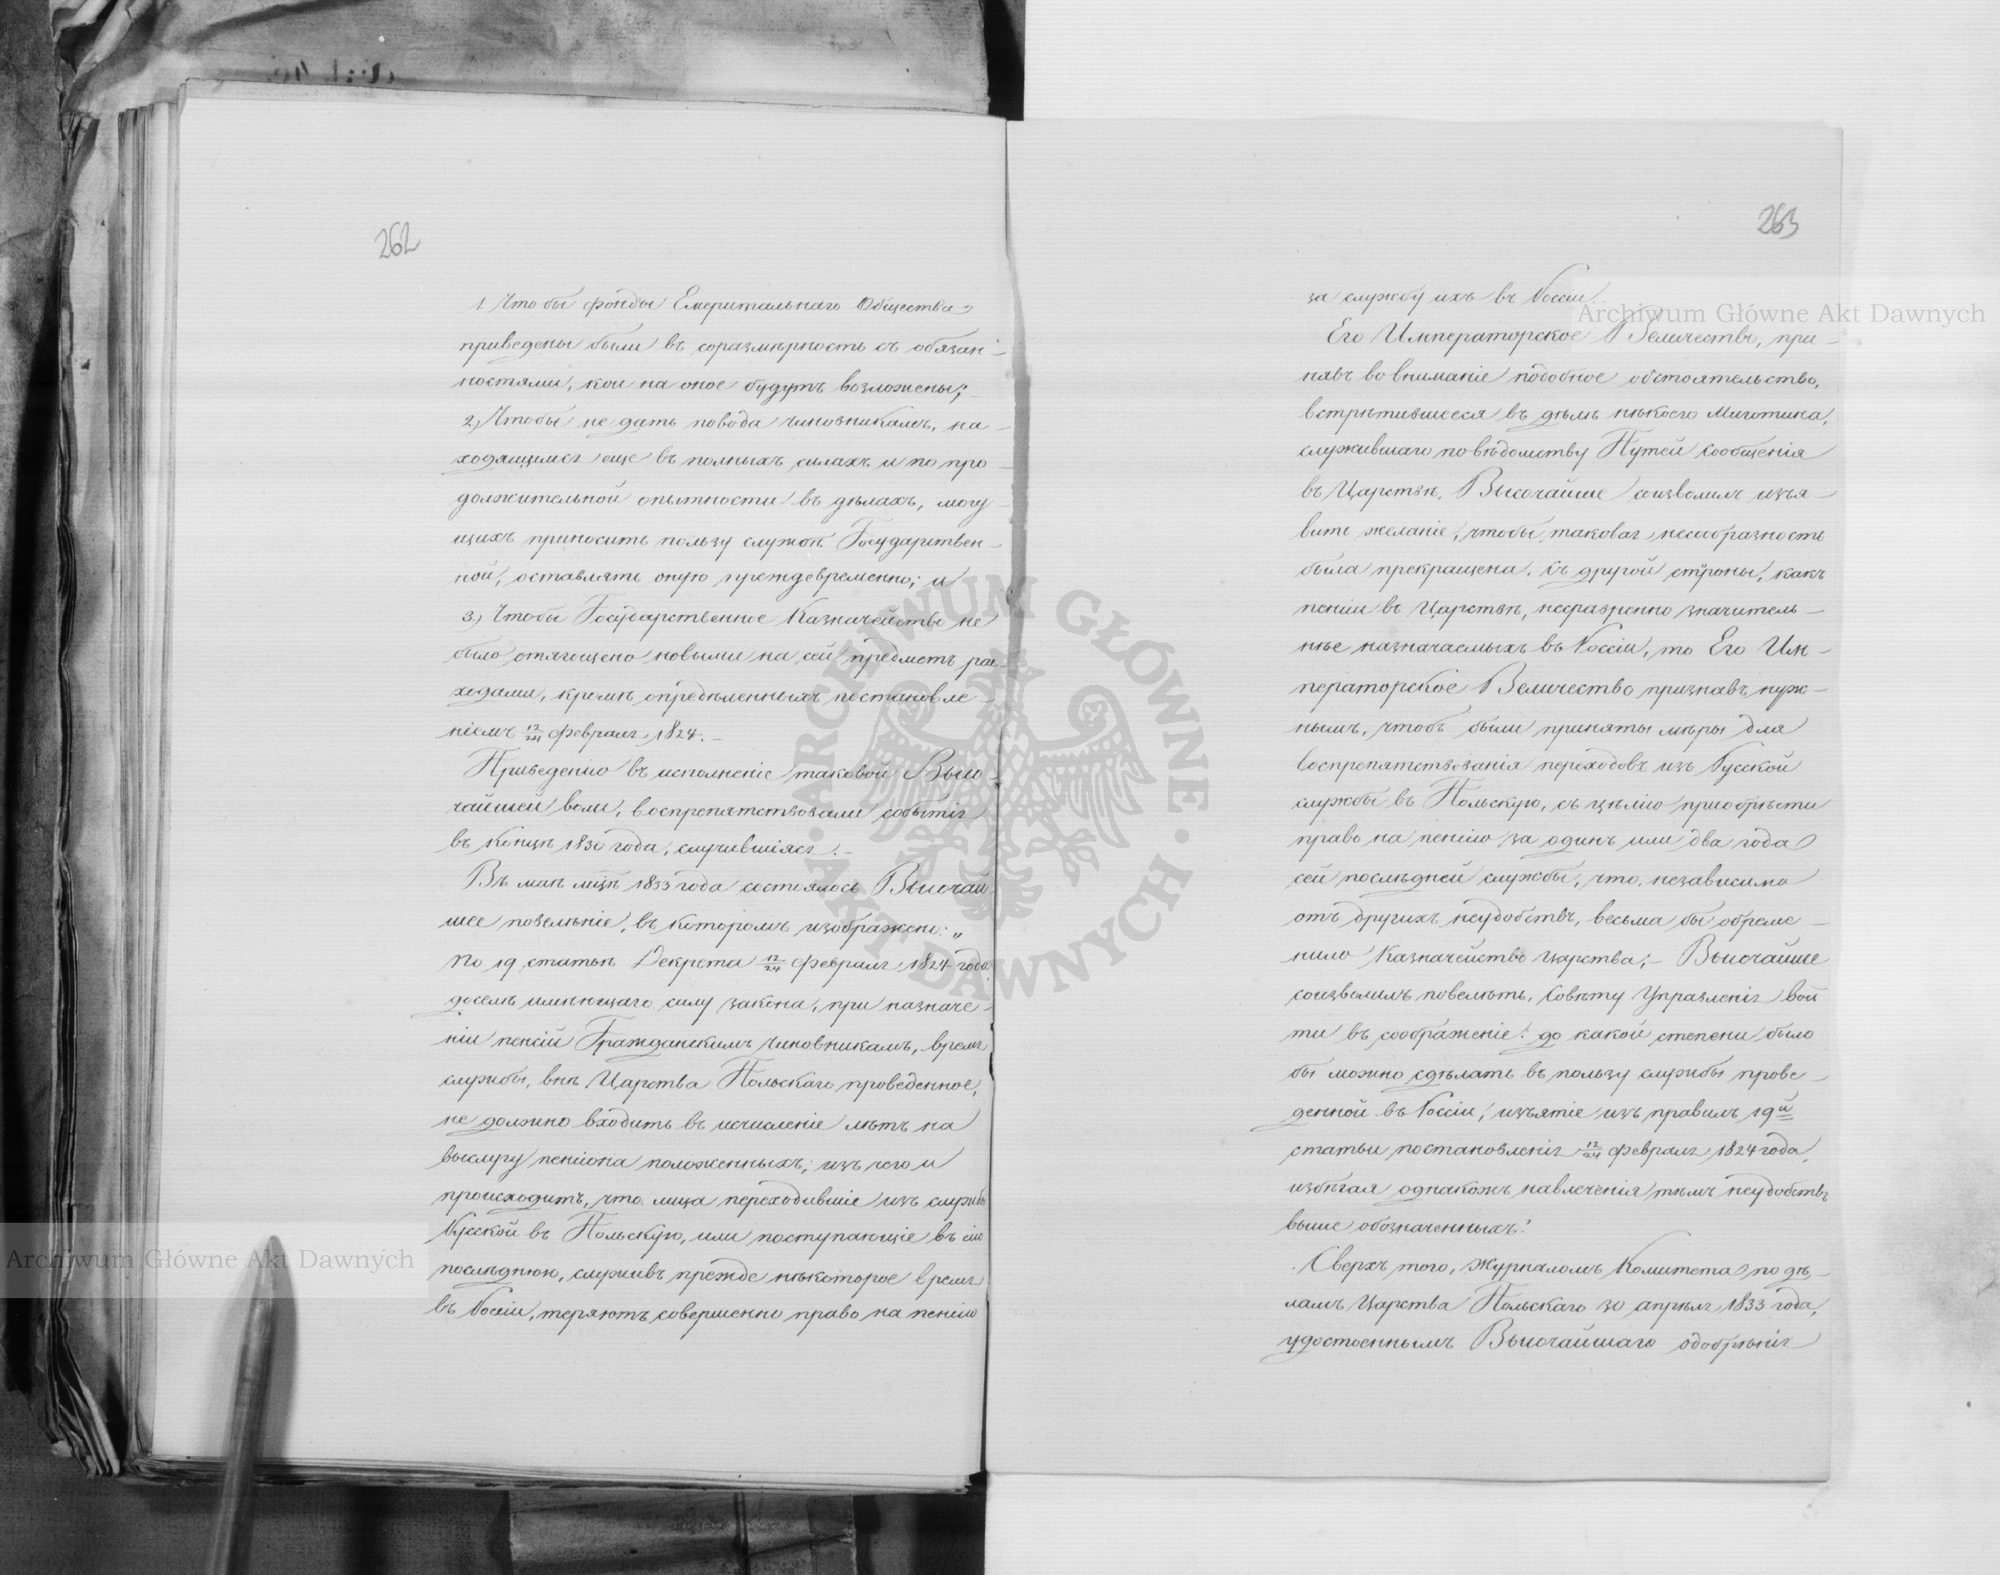 262
1. Что бы фонды Емеритальнаго Общества
приведены были въ соразмѣрность съ обязан-
ностями, кои на оное будутъ возложены;
2, Чтобы не дать повода чиновникамъ, на-
ходящимся еще въ полныхъ силахъ и по про-
должительной опытности въ дѣлахъ, могу-
щихъ приносить пользу службѣ Государствен-
ной, оставлять оную преждевременно; и
3, Чтобы Государственное Казначейство не
было отягощено новыми на сей предметъ рас-
ходами, кромѣ опредѣленныхъ постановле-
ніемъ 12/24 февраля 1824.-
Приведенію въ исполненіе таковой Высо-
чайшей воли, воспрепятствовали событія
въ концѣ 1830 года, случившіяся.-
Въ маѣ мцѣ 1833 года состоялось Высочай-
шее повелѣніе, въ которомъ изображено: „
По 19 статьѣ Декрета 12/24 февраля 1824 года
доселѣ имѣющаго силу закона, при назначе-
ніи пенсій Гражданскимъ чиновникамъ, время
службы, внѣ Царства Польскаго проведенное,
не должно входить въ исчисленіе лѣтъ на
выслугу пенсіона положенныхъ; изъ чего и
происходитъ, что лица переходившіе изъ службы
Русской въ Польскую, или поступающіе въ сію
послѣднюю, служивъ прежде нѣкоторое время
въ Россіи, теряютъ совершенно право на пенсію
263
за службу ихъ въ Россіи.
Его Императорское Величество, при-
нявъ во вниманіе подобное обстоятельство,
встрѣтившееся въ дѣлѣ нѣкоего Миготина,
служившаго по вѣдомству Путей сообщенія
въ Царствѣ, Высочайше соизволилъ изъя-
вить желаніе, чтобы таковая несообразность
была прекращена. Съ другой стороны, какъ
пенсіи въ Царствѣ, несравненно значитель-
нѣе назначаемыхъ въ Россіи, то Его Им-
ператорское Величество признавъ нуж-
нымъ, чтобъ были приняты мѣры для
воспрепятствованія переходовъ изъ Русской
службы въ Польскую, съ цѣлію приобрѣсти
право на пенсію за одинъ или два года
сей послѣдней службы, что, независимо
отъ другихъ неудобствъ, весьма бы обреме-
нило Казначейство Царства;- Высочайше
соизволилъ повелѣть, Совѣту Управленія вой-
ти въ соображеніе: до какой степени было
бы можно сдѣлать въ пользу службы прове-
денной въ Россіи, изъятіе изъ правилъ 19й
статьи постановленія 12/24 февраля 1824 года,
избѣгая однакожъ навлеченія тѣмъ неудобствъ
выше обозначенныхъ!
Сверхъ того, журналомъ Комитета по дѣ-
ламъ Царства Польскаго 30 апрѣля 1833 года,
удостоеннымъ Высочайшаго одобрѣнія
Archiwum Główne Akt Dawnych
Archiwum Główne Akt Dawnych
ARCHIWUM GŁÓWNE · AKT DAWNYCH ·